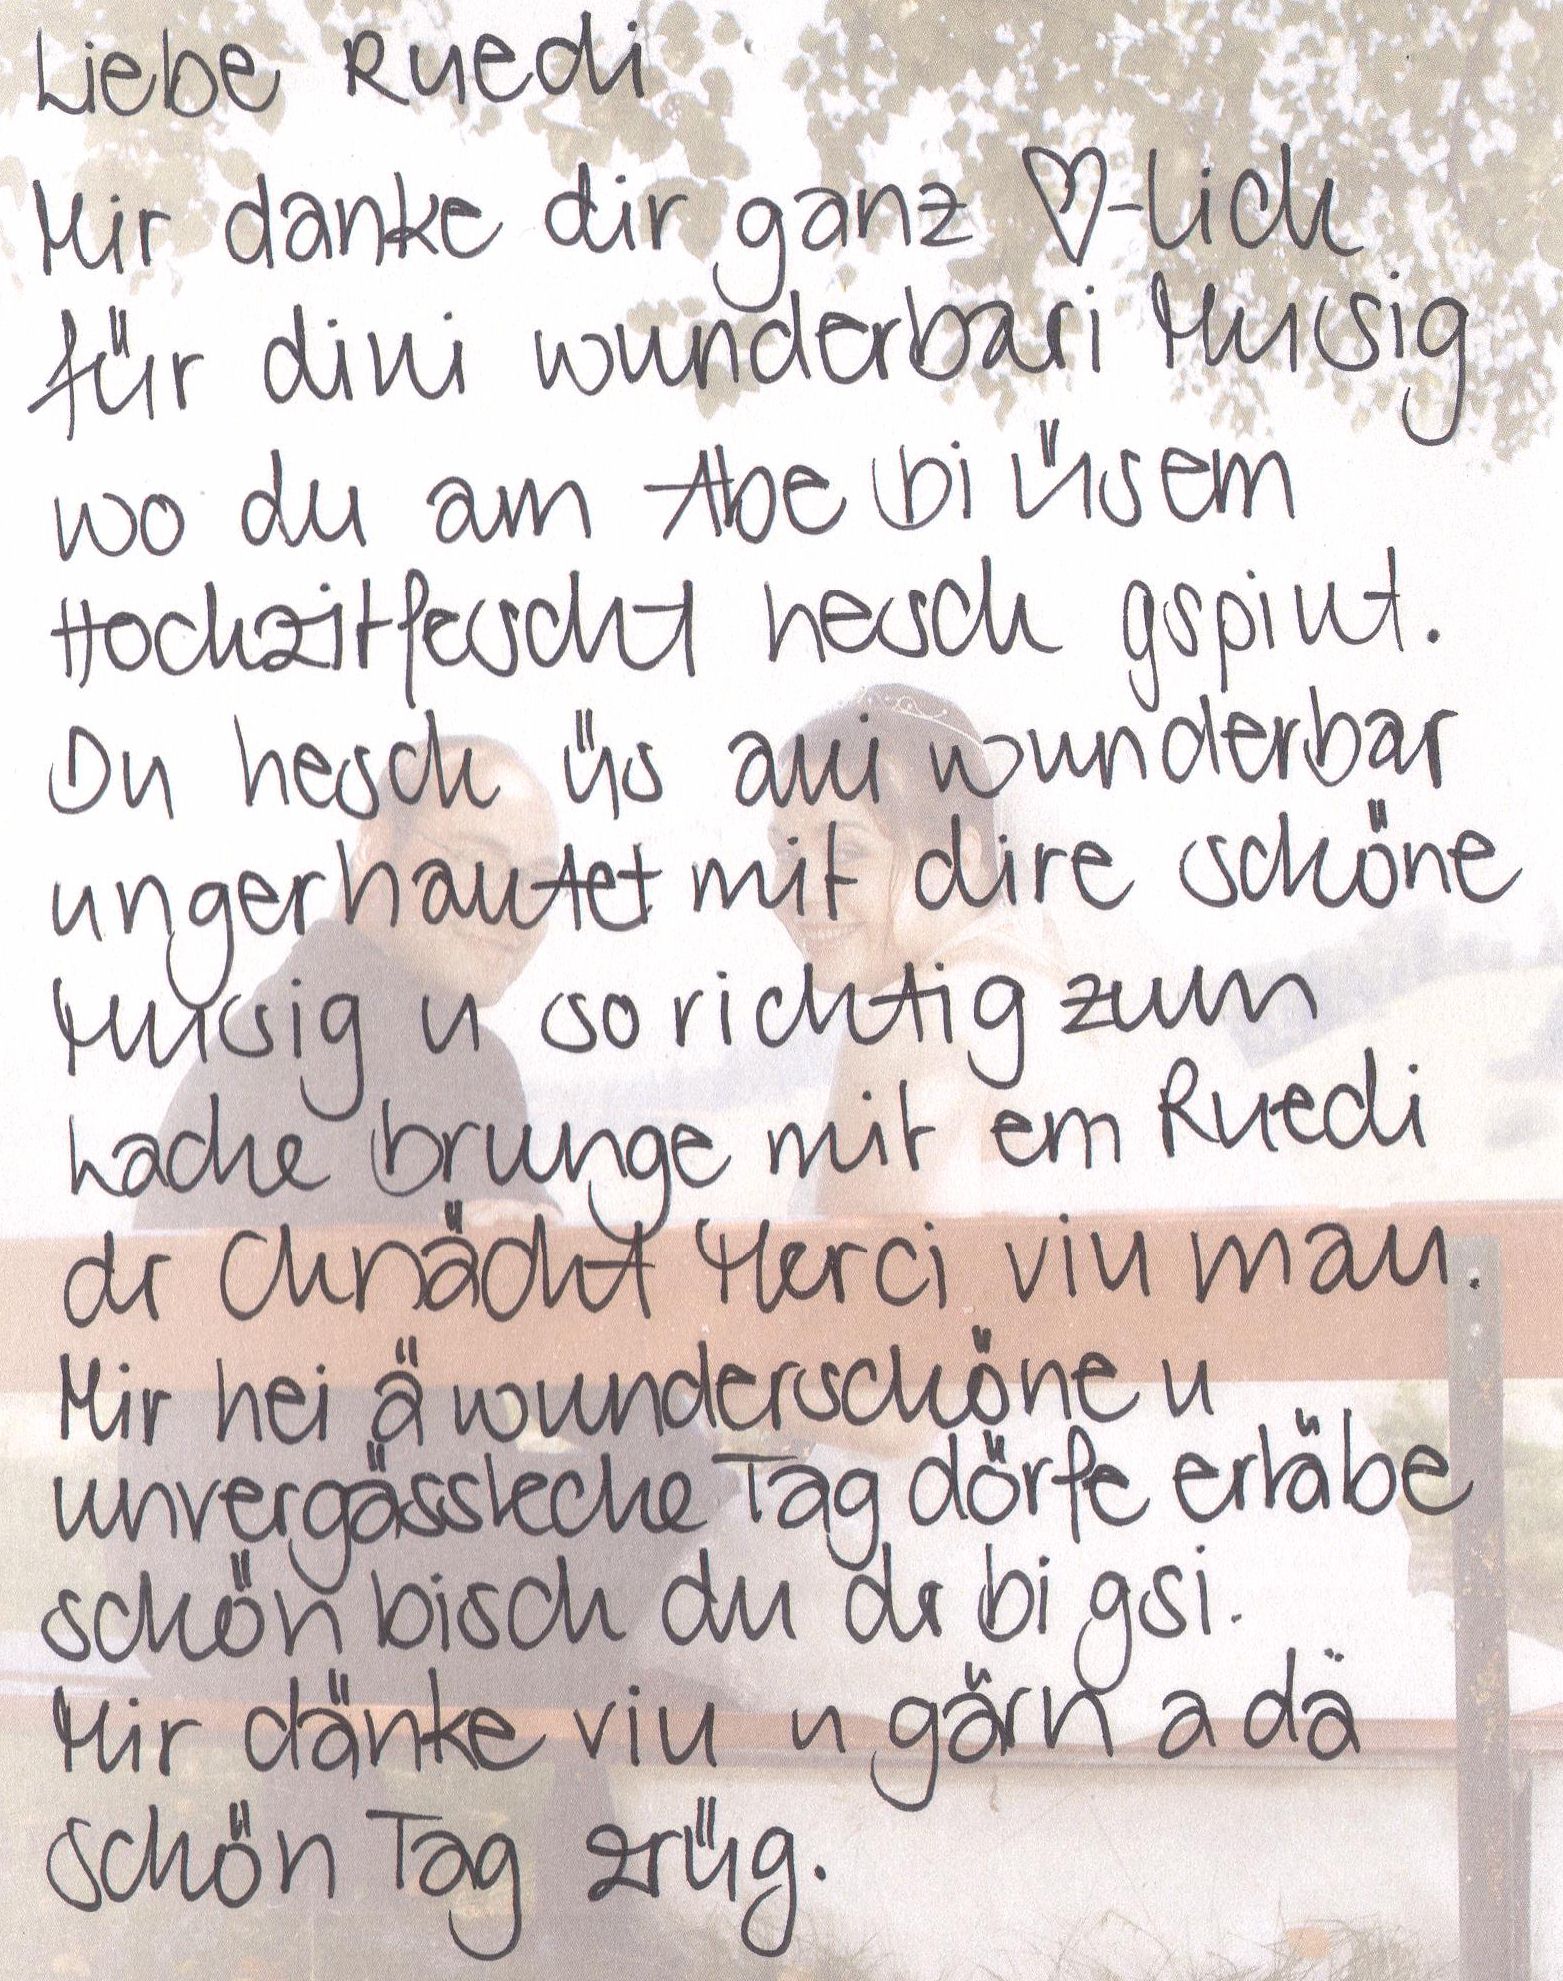 Liebe Ruedi
Mir danke dir ganz ♡-lich
für dini wunderbari Musig
wo du am Abe bi üsem
Hochzitfescht hesch gspiut.
Du hesch üs aui wunderbar
ungerhautet mit dire schöne
Musig u so richtig zum
Lache brunge mit em Ruedi
dr Chnächt Merci viu mau.
Mir hei ä wunderschöne u
unvergässleche Tag dörfe erläbe
schön bisch du dr bi gsi.
Mir dänke viu u gärn a dä
schön Tag zrüg.